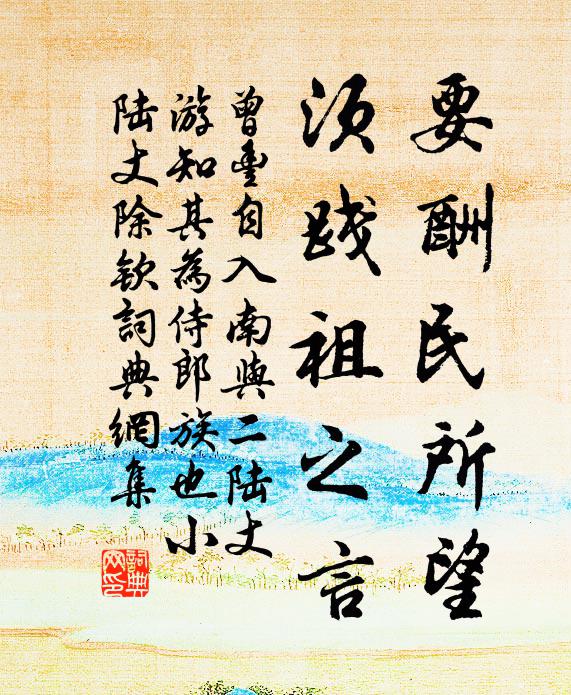 要酬民所望
須踐祖之言
曾豐自入南與二陸丈
游知其為侍郎族也小
陸丈除欽詞典網集
詞典網印